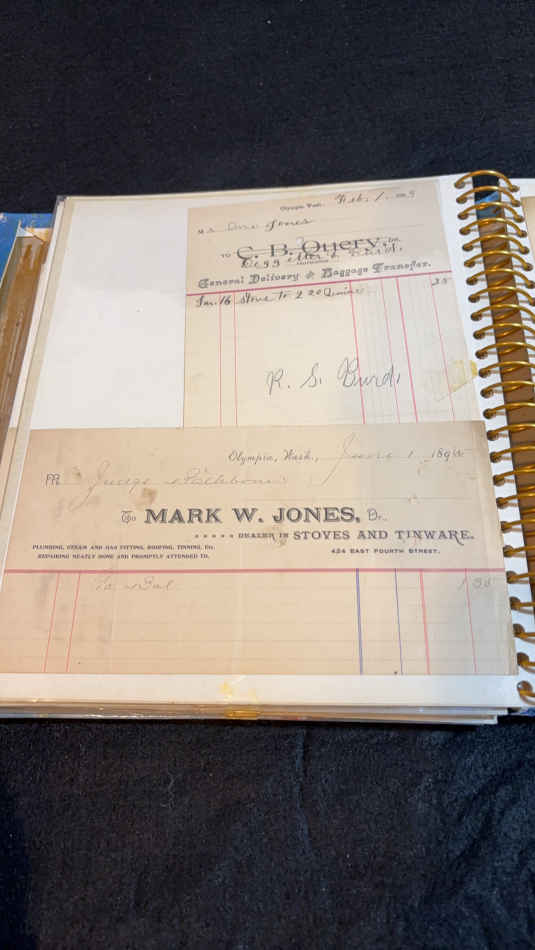 Olympia, Wash., Feb. 1.
M Jones
To C. B. Query, Dr.
General Delivery & Baggage Transfer.
Jan. 16 Stove to 220 .25
R. S. Burd.
Olympia, Wash., June 1 189
M Judge
To MARK W. JONES, Dr.
DEALER IN STOVES AND TINWARE.
PLUMBING, STEAM AND GAS FITTING, ROOFING, TINNING, Etc.
REPAIRING NEATLY DONE AND PROMPTLY ATTENDED TO.
424 EAST FOURTH STREET.
To Bal